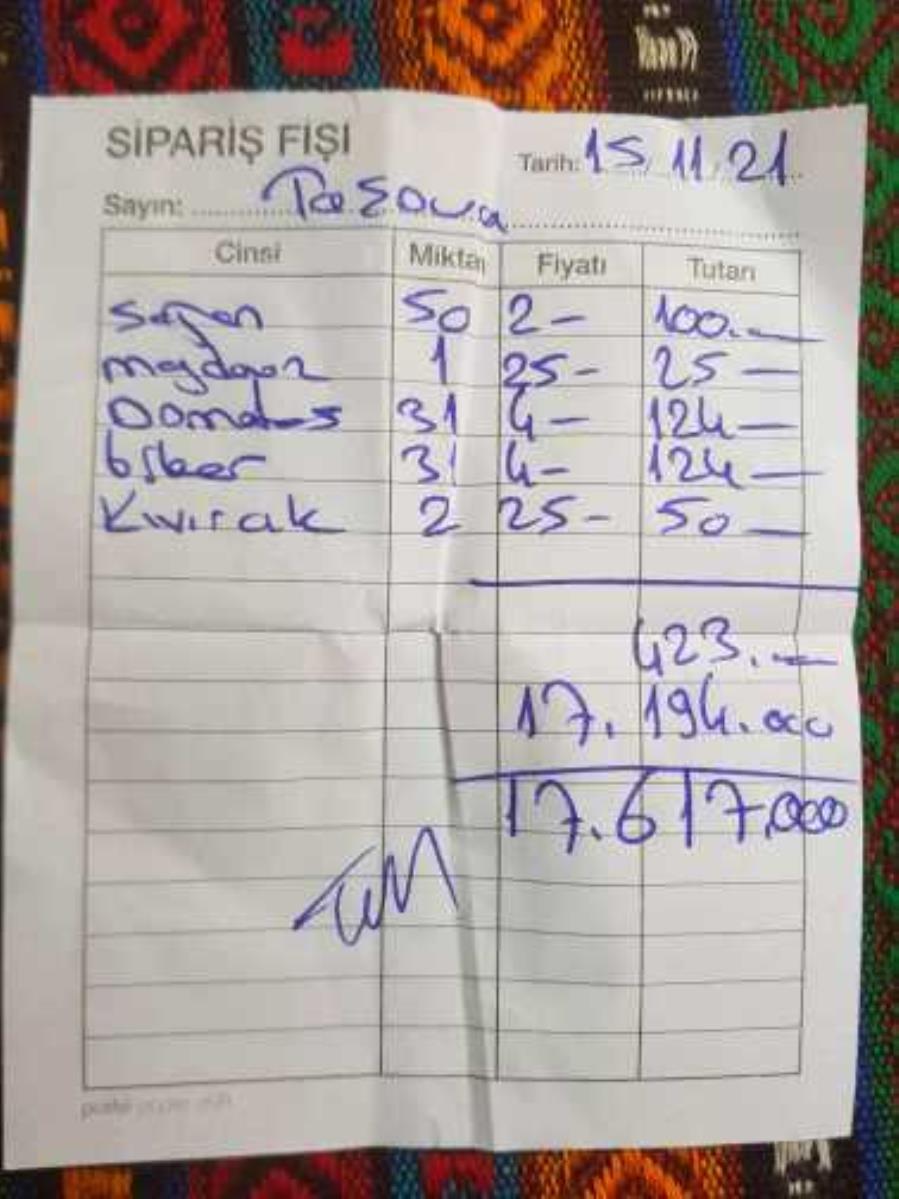 SİPARİŞ FİŞİ
Tarih: 15.11.21
Sayın: Taşova
Cinsi Miktarı Fiyatı Tutarı
soğan 50 2- 100.-
maydanoz 1 25- 25-
Domates 31 4- 124-
biber 31 4- 124-
Kıvırcık 2 25- 50-
423.-
17.194.000
17.617.000